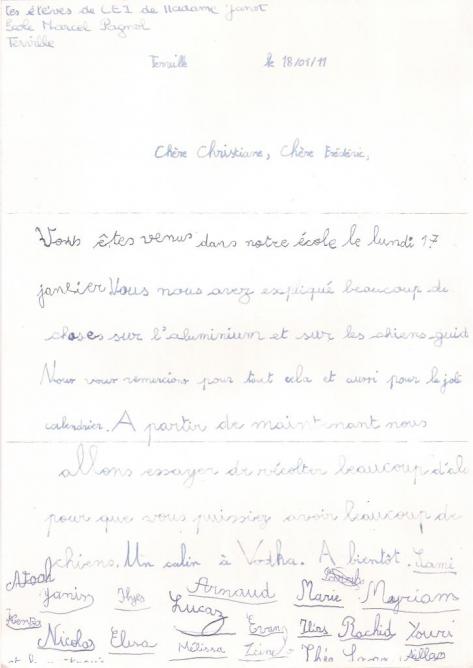 Les élèves de CE1 de Madame Janot
Ecole Marcel Pagnol
Terville
Terville le 18/01/11
Chère Christiane, Chère Frédéric,
Vous êtes venus dans notre école le lundi 17
janvier Vous nous avez expiqué beaucoup de
choses sur l'aluminium et sur les chiens guid
Nous vous remercions pour tout cela et aussi pour le joli
calendrier. A partir de maintenant nous
allons essayer de récolter beaucoup d'alu
pour que vous puissiez avoir beaucoup de
chiens. Un calin à Vodka. A bientôt. Sami
Janiss Ilyes Arnaud Marie Meyriam
Lucas
Kenza Nicolas Elisa Mélissa Evan Ilies Rachid Youri
Théo